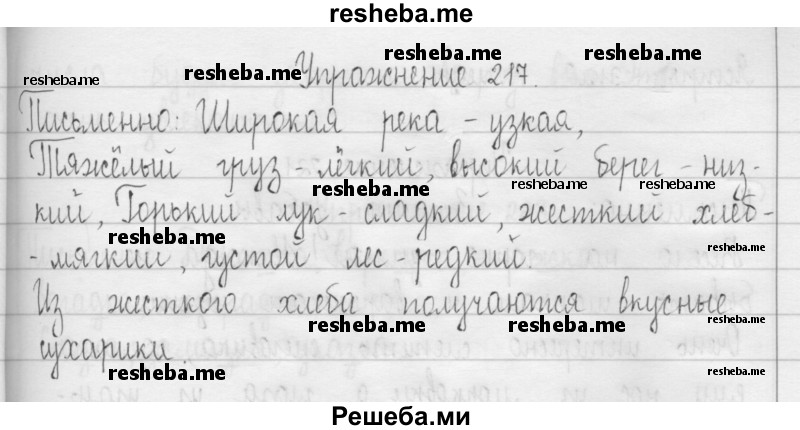 resheba.me
Упражнение 217.
Письменно: Широкая река - узкая,
Тяжёлый груз - лёгкий, высокий берег - низ-
кий, Горький лук - сладкий, жесткий хлеб-
- мягкий, густой лес - редкий.
Из жесткого хлеба получаются вкусные
сухарики.
resheba.me
resheba.me
resheba.me
resheba.me
resheba.me
resheba.me
resheba.me
resheba.me
resheba.me
resheba.me
resheba.me
resheba.me
resheba.me
Решеба.ми